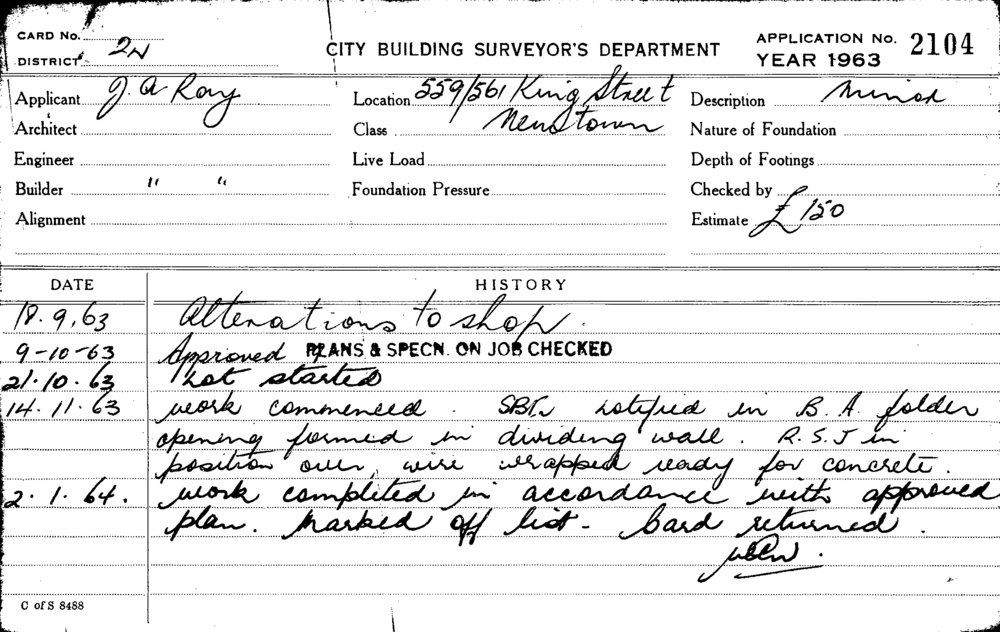 CARD No.
DISTRICT 2N
CITY BUILDING SURVEYOR'S DEPARTMENT
APPLICATION No. 2104
YEAR 1963
Applicant J. A Ray
Location 559/561 King Street
Description Minor
Architect
Class Newtown
Nature of Foundation
Engineer
Live Load
Depth of Footings
Builder " "
Foundation Pressure
Checked by
Alignment
Estimate £150
DATE HISTORY
18.9.63 Alterations to shop.
9-10-63 Approved PLANS & SPECN. ON JOB CHECKED
21.10.63 Not started
14.11.63 work commenced. notified in B.A. folder
opening formed in dividing wall. R.S.J in
position over, wire wrapped ready for concrete.
2.1.64. work completed in accordance with approved
plan. Marked off list - Card returned.
C of S 8488